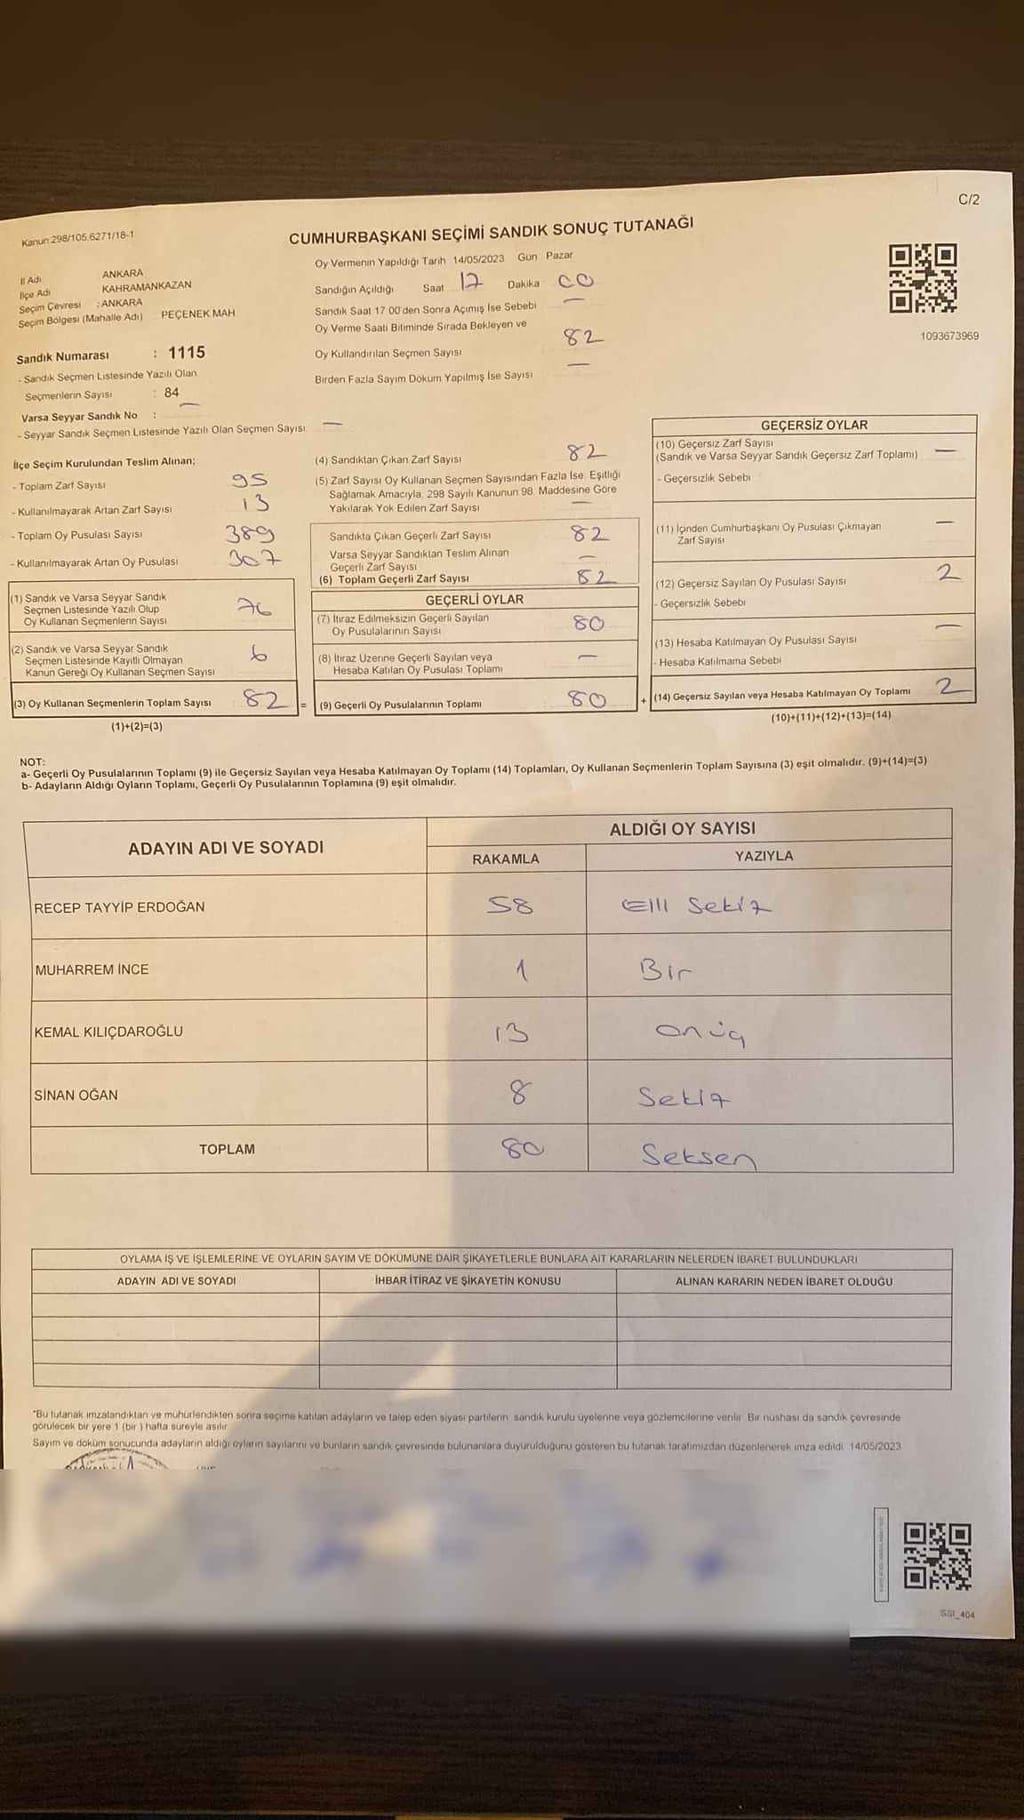 C/2
Kanun 298/105.6271/18-1
CUMHURBAŞKANI SEÇİMİ SANDIK SONUÇ TUTANAĞI
1093673969
İl Adı ANKARA
İlçe Adı KAHRAMANKAZAN
Seçim Çevresi : ANKARA
Seçim Bölgesi (Mahalle Adı) PEÇENEK MAH
Sandık Numarası : 1115
- Sandık Seçmen Listesinde Yazılı Olan
Seçmenlerin Sayısı : 84
Varsa Seyyar Sandık No : —
- Seyyar Sandık Seçmen Listesinde Yazılı Olan Seçmen Sayısı —
Oy Vermenin Yapıldığı Tarih 14/05/2023 Gün Pazar
Sandığın Açıldığı Saat 17 Dakika 00
Sandık Saat 17 00'den Sonra Açımış İse Sebebi —
Oy Verme Saati Bitiminde Sırada Bekleyen ve
Oy Kullandırılan Seçmen Sayısı 82
Birden Fazla Sayım Döküm Yapılmış İse Sayısı —
İlçe Seçim Kurulundan Teslim Alınan;
- Toplam Zarf Sayısı 95
- Kullanılmayarak Artan Zarf Sayısı 13
- Toplam Oy Pusulası Sayısı 389
- Kullanılmayarak Artan Oy Pusulası 307
(1) Sandık ve Varsa Seyyar Sandık
Seçmen Listesinde Yazılı Olup
Oy Kullanan Seçmenlerin Sayısı 76
(2) Sandık ve Varsa Seyyar Sandık
Seçmen Listesinde Kayıtlı Olmayan
Kanun Gereği Oy Kullanan Seçmen Sayısı 6
(3) Oy Kullanan Seçmenlerin Toplam Sayısı 82 =
(1)+(2)=(3)
(4) Sandıktan Çıkan Zarf Sayısı 82
(5) Zarf Sayısı Oy Kullanan Seçmen Sayısından Fazla İse. Eşitliği
Sağlamak Amacıyla, 298 Sayılı Kanunun 98. Maddesine Göre
Yakılarak Yok Edilen Zarf Sayısı —
Sandıkta Çıkan Geçerli Zarf Sayısı 82
Varsa Seyyar Sandıktan Teslim Alınan
Geçerli Zarf Sayısı —
(6) Toplam Geçerli Zarf Sayısı 82
GEÇERLİ OYLAR
(7) İtiraz Edilmeksizin Geçerli Sayılan
Oy Pusulalarının Sayısı 80
(8) İtiraz Üzerine Geçerli Sayılan veya
Hesaba Katılan Oy Pusulası Toplamı —
(9) Geçerli Oy Pusulalarının Toplamı 80 +
GEÇERSİZ OYLAR
(10) Geçersiz Zarf Sayısı
(Sandık ve Varsa Seyyar Sandık Geçersiz Zarf Toplamı) —
- Geçersizlik Sebebi
(11) İçinden Cumhurbaşkanı Oy Pusulası Çıkmayan
Zarf Sayısı —
(12) Geçersiz Sayılan Oy Pusulası Sayısı 2
- Geçersizlik Sebebi
(13) Hesaba Katılmayan Oy Pusulası Sayısı —
- Hesaba Katılmama Sebebi
(14) Geçersiz Sayılan veya Hesaba Katılmayan Oy Toplamı 2
(10)+(11)+(12)+(13)=(14)
NOT:
a- Geçerli Oy Pusulalarının Toplamı (9) ile Geçersiz Sayılan veya Hesaba Katılmayan Oy Toplamı (14) Toplamları, Oy Kullanan Seçmenlerin Toplam Sayısına (3) eşit olmalıdır. (9)+(14)=(3)
b- Adayların Aldığı Oyların Toplamı, Geçerli Oy Pusulalarının Toplamına (9) eşit olmalıdır.
ADAYIN ADI VE SOYADI ALDIĞI OY SAYISI
RAKAMLA YAZIYLA
RECEP TAYYİP ERDOĞAN 58 Elli Sekiz
MUHARREM İNCE 1 Bir
KEMAL KILIÇDAROĞLU 13 onüç
SİNAN OĞAN 8 Sekiz
TOPLAM 80 Seksen
OYLAMA İŞ VE İŞLEMLERİNE VE OYLARIN SAYIM VE DÖKÜMÜNE DAİR ŞİKAYETLERLE BUNLARA AİT KARARLARIN NELERDEN İBARET BULUNDUKLARI
ADAYIN ADI VE SOYADI İHBAR İTİRAZ VE ŞİKAYETİN KONUSU ALINAN KARARIN NEDEN İBARET OLDUĞU
*Bu tutanak imzalandıktan ve mühürlendikten sonra seçime katılan adayların ve talep eden siyasi partilerin sandık kurulu üyelerine veya gözlemcilerine verilir. Bir nüshası da sandık çevresinde
görülecek bir yere 1 (bir ) hafta süreyle asılır
Sayım ve döküm sonucunda adayların aldığı oyların sayılarını ve bunların sandık çevresinde bulunanlara duyurulduğunu gösteren bu tutanak tarafımızdan düzenlenerek imza edildi. 14/05/2023
SSI_404